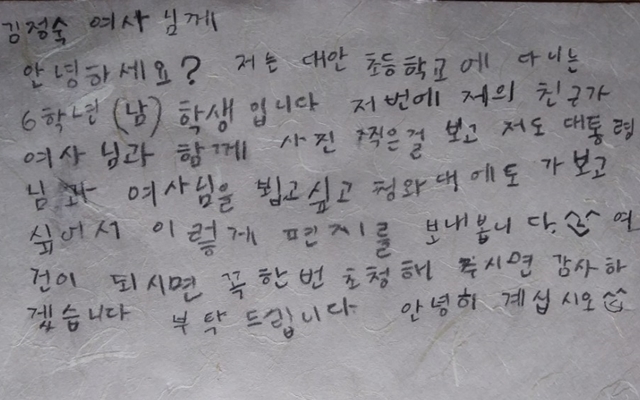 김정숙 여사 님께
안녕하세요? 저는 대안 초등학교에 다니는
6학년 (남) 학생입니다 저번에 저의 친구가
여사 님과 함께 사진 찍은걸 보고 저도 대통령
님과 여사님을 뵙고싶고 청와대에도 가보고
싶어서 이렇게 편지를 보내봅니다. ^^ 여
건이 되시면 꼭 한번 초청해 주시면 감사하
겠습니다 부탁 드립니다 안녕히 계십시오